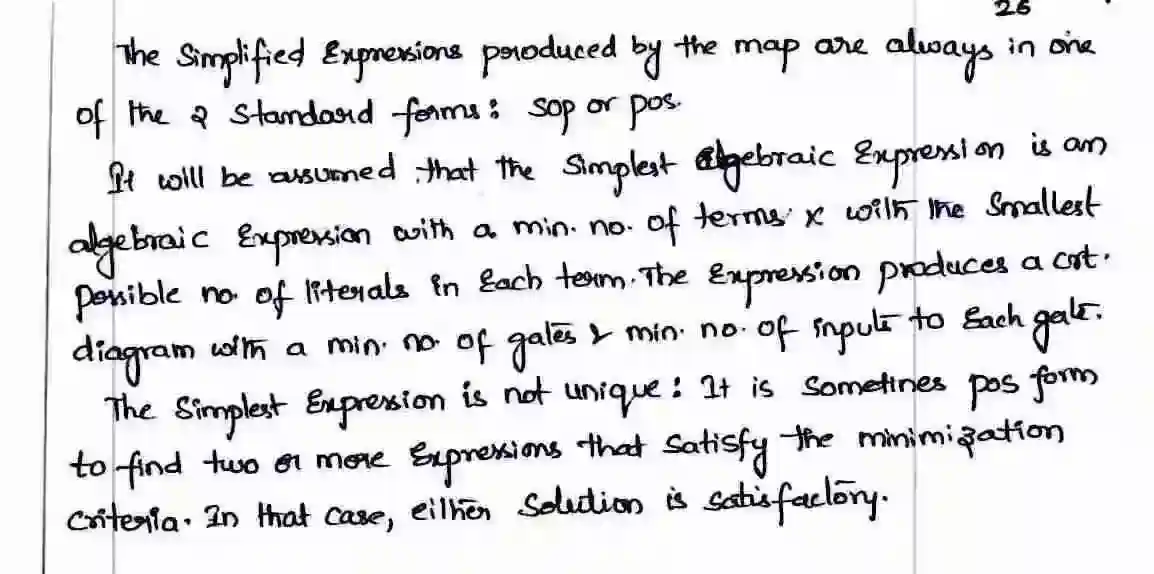 26
The Simplified Expressions produced by the map are always in one
of the 2 Standard forms: SOP or pos.
It will be assumed that the Simplest algebraic Expression is an
algebraic Expression with a min. no. of terms x with the Smallest
Possible no. of literals in Each term. The Expression produces a cxt.
diagram with a min. no. of gates & min. no. of inputs to Each gate.
The Simplest Expression is not unique: It is Sometimes pos form
to find two or more Expressions that Satisfy the minimization
criteria. In that case, either Solution is satisfactory.